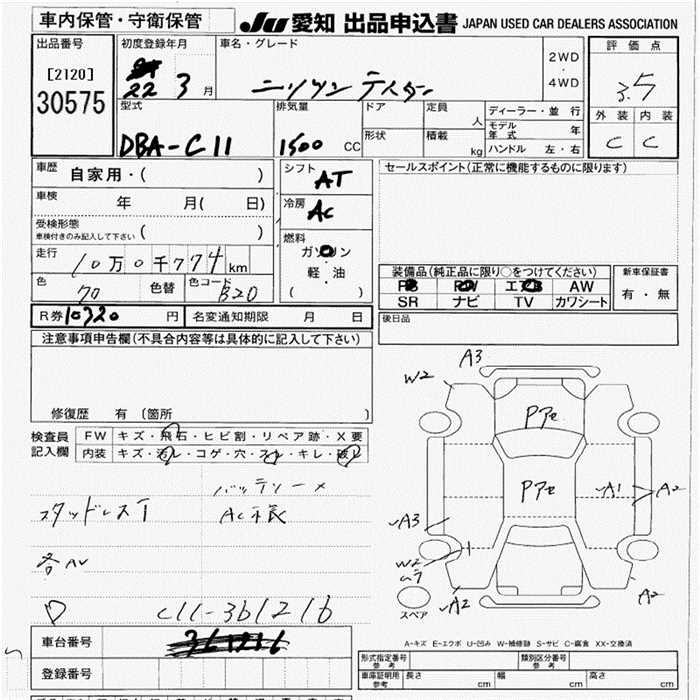 車内保管・守衛保管
JU 愛知 出品申込書 JAPAN USED CAR DEALERS ASSOCIATION
出品番号
[2120]
30575
初度登録年月
22 3 月
車名・グレード
2WD
・
4WD
評価点
3.5
外装 内装
C C
型式
DBA-C11
排気量
1500 CC
ドア
形状
定員
人
積載
kg
ディーラー・並行
モデル年式 年
ハンドル 左・右
車歴
自家用・( )
車検
年 月( 日)
受検形態
車検付きのみ記入して下さい ( )
走行
10万0千774 km
色
色替
色コード
B20
シフト
AT
冷房
AC
燃料
ガソリン
軽・油
( )
セールスポイント(正常に機能するものに限ります)
装備品(純正品に限り○をつけてください)
PS PW エアB AW
SR ナビ TV カワシート
新車保証書
有・無
後日品
R券 10320 円
名変通知期限 月 日
注意事項申告欄(不具合内容等は具体的に記入して下さい)
修復歴 有 〔箇所 〕
検査員
記入欄
FW キズ・飛石・ヒビ割・リペア跡・X要
内装 キズ・汚レ・コゲ・穴・スレ・キレ・破レ
バッテリー×
スタッドレスT
各AU
C11-361216
車台番号
361216
登録番号
A3
W2
Pアセ
Pアセ
A1
A2
A3
W2
ムラ
A2
A2
スペア
A-キズ E-エクボ U-凹み W-補修跡 S-サビ C-腐食 XX-交換済
形式指定番号
参考
類別区分番号
参考
車庫証明用
参考
長さ cm
幅 cm
高さ cm